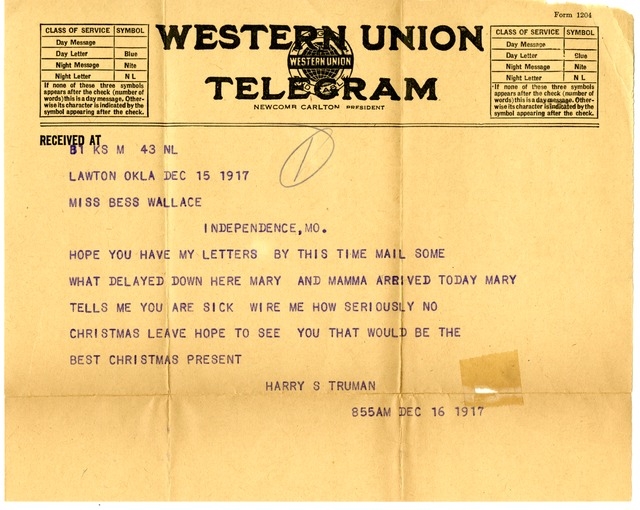 Form 1204
CLASS OF SERVICE SYMBOL
Day Message
Day Letter Blue
Night Message Nite
Night Letter N L
If none of these three symbols
appears after the check (number of
words) this is a day message. Other-
wise its character is indicated by the
symbol appearing after the check.
WESTERN UNION
WESTERN UNION
TELEGRAM
NEWCOMB CARLTON PRESIDENT
CLASS OF SERVICE SYMBOL
Day Message
Day Letter Blue
Night Message Nite
Night Letter N L
If none of these three symbols
appears after the check (number of
words) this is a day message. Other-
wise its character is indicated by the
symbol appearing after the check.
RECEIVED AT
B1 KS M 43 NL
LAWTON OKLA DEC 15 1917
MISS BESS WALLACE
INDEPENDENCE, MO.
HOPE YOU HAVE MY LETTERS BY THIS TIME MAIL SOME
WHAT DELAYED DOWN HERE MARY AND MAMMA ARRIVED TODAY MARY
TELLS ME YOU ARE SICK WIRE ME HOW SERIOUSLY NO
CHRISTMAS LEAVE HOPE TO SEE YOU THAT WOULD BE THE
BEST CHRISTMAS PRESENT
HARRY S TRUMAN
855AM DEC 16 1917